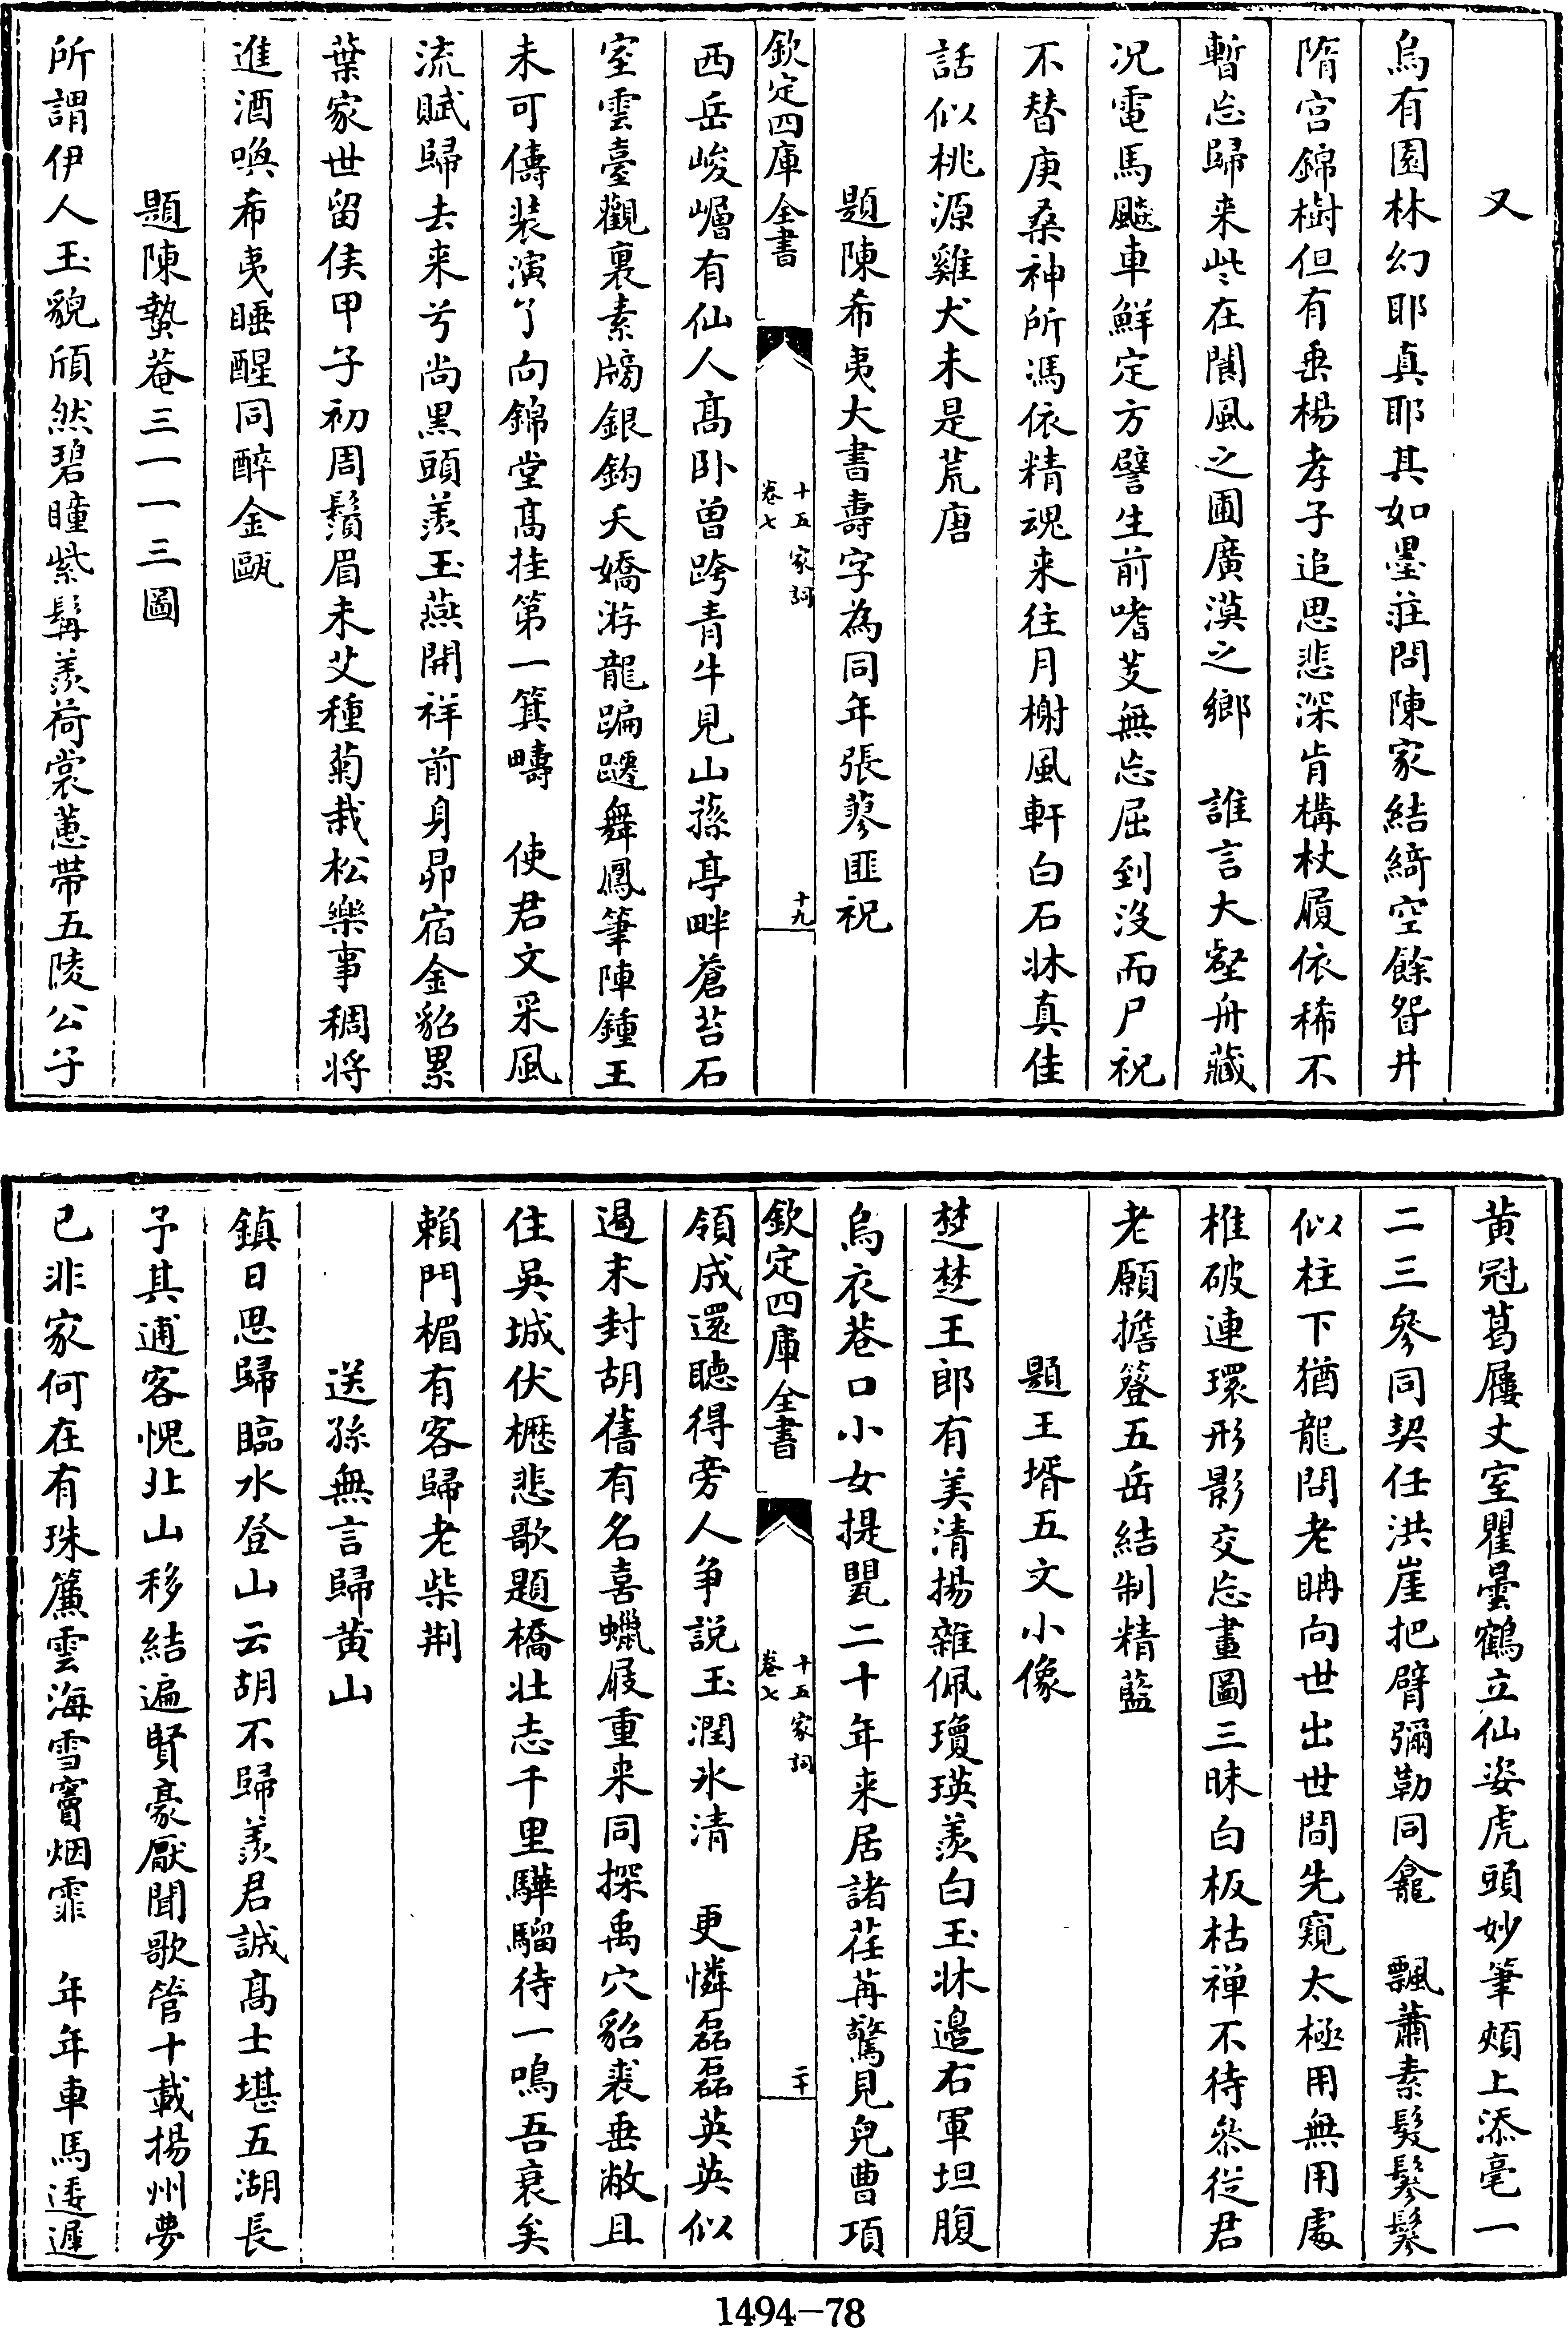 又
烏有園林幻耶真耶其如墨莊問陳家結綺空餘眢井
隋宮錦樹但有垂楊孝子追思悲深肯構杖履依稀不
暫忘歸来些在閬風之圃廣漠之鄉　誰言大壑舟藏
况電馬飈車鮮定方譬生前嗜芰無忘屈到沒而尸祝
不替庚桑神所馮依精魂来往月榭風軒白石牀真佳
話似桃源雞犬未是荒唐
題陳希夷大書壽字為同年張蓼匪祝
欽定四庫全書
十五家詞
卷七
十九
西岳峻嶒有仙人高卧曾跨青牛見山蓀亭畔蒼苔石
室雲臺觀裏素牓銀鈎夭嬌游龍蹁躚舞鳳筆陣鍾王
未可儔裝演了向錦堂高挂第一箕疇　使君文采風
流賦歸去来兮尚黑頭羡玉燕開祥前身昴宿金貂累
葉家世留侯甲子初周鬚眉未艾種菊栽松樂事稠將
進酒喚希夷睡醒同醉金甌
題陳蟄菴三一一三圖
所謂伊人玉貌頎然碧瞳紫髯羨荷裳蕙帶五陵公子
黄冠葛屨丈室瞿曇鶴立仙姿虎頭妙筆頰上添毫一
二三參同契任洪崖把臂彌勒同龕　飄蕭素髮鬖鬖
似柱下猶龍問老聃向世出世間先窺太極用無用處
椎破連環形影交忘畫圖三昧白板枯禪不待參從君
老願擔簦五岳結制精藍
題王壻五文小像
楚楚王郎有美清揚雜佩瓊瑛羨白玉牀邉右軍坦腹
烏衣巷口小女提甖二十年来居諸荏苒驚見兒曹項
欽定四庫全書
十五家詞
卷七
二十
領成還聴得旁人争説玉潤氷清　更憐磊磊英英似
遏末封胡舊有名喜蠟屐重来同探禹穴貂裘垂敝且
住吳城伏櫪悲歌題橋壯志千里驊騮待一鳴吾衰矣
賴門楣有客歸老柴荆
送孫無言歸黄山
鎮日思歸臨水登山云胡不歸羨君誠髙士堪五湖長
予其逋客愧北山移結遍賢豪厭聞歌管十載揚州夢
已非家何在有珠簾雲海雪竇烟霏　年年車馬逶遲
1494-78